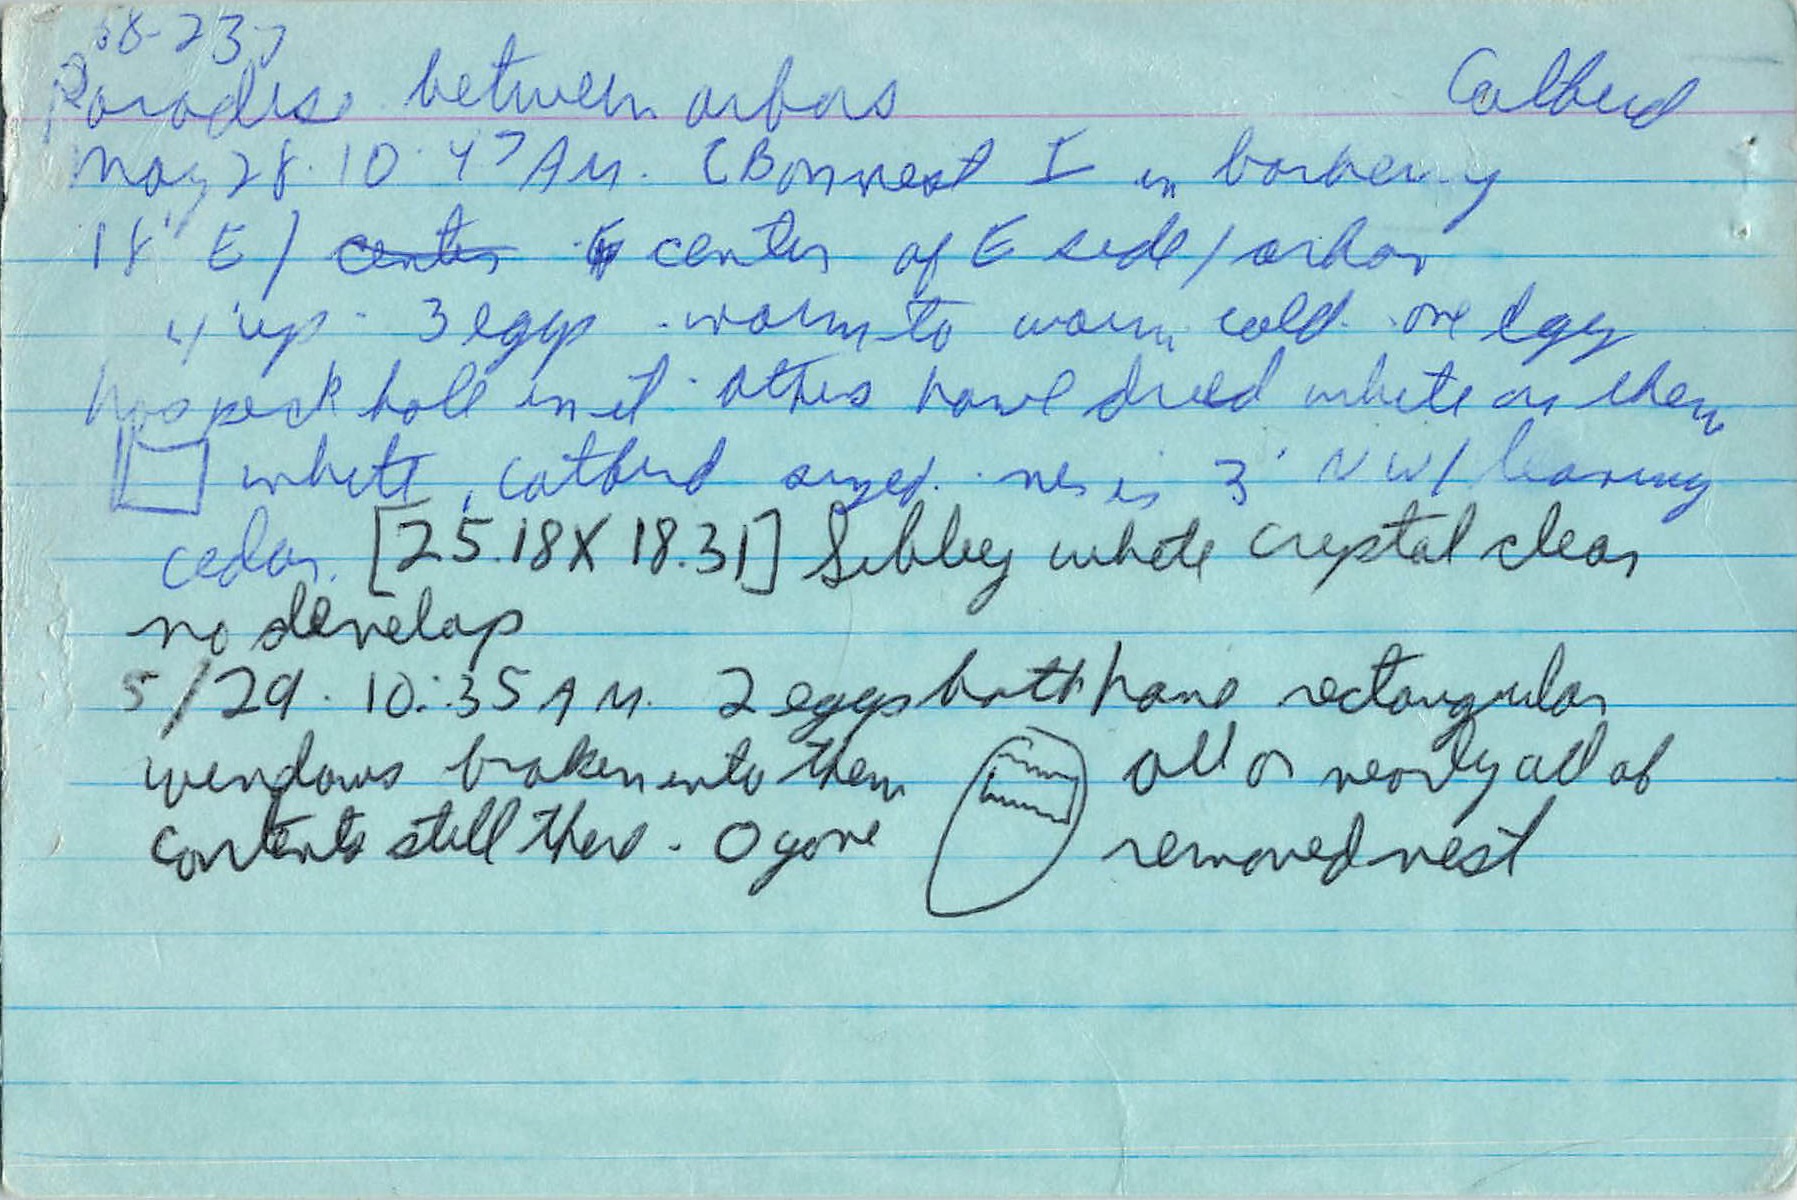 58-23-7
Paradise between arbors Catbird
May 28. 10:47 AM. CB on nest I in barberry
18' E/ center center of E side/arbor
4' up - 3 eggs - warm to warm cold. one egg
has peck hole in it. others have dried white on them
white, catbird sized. nes is 3' NW/leaning
cedar. [25.18 X 18.31] Sibley white crystal clear
no develop
5/29. 10:35 AM. 2 eggs both have rectangular
windows broken into them all or nearly all of
contents still there. O gone removed nest